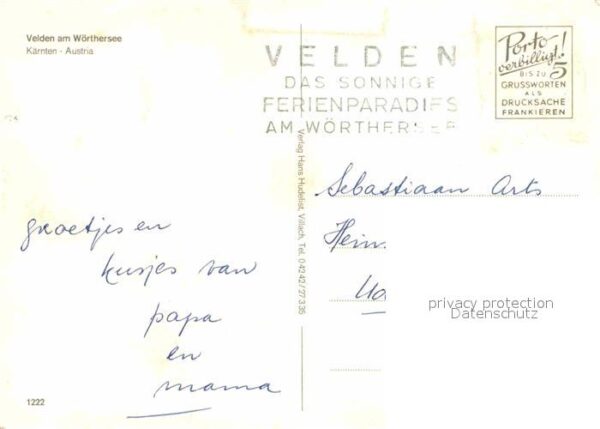 Velden am Wörthersee
Kärnten - Austria
VELDEN
DAS SONNIGE
FERIENPARADIES
AM WÖRTHERSEE
Porto
verbilligt!
BIS ZU 5
GRUSSWORTEN
ALS
DRUCKSACHE
FRANKIEREN
Verlag Hans Hudelist, Villach, Tel. 04242/27335
groetjes en
kusjes van
papa
en
mama
Sebastiaan Arts
Hein
privacy protection
Datenschutz
1222